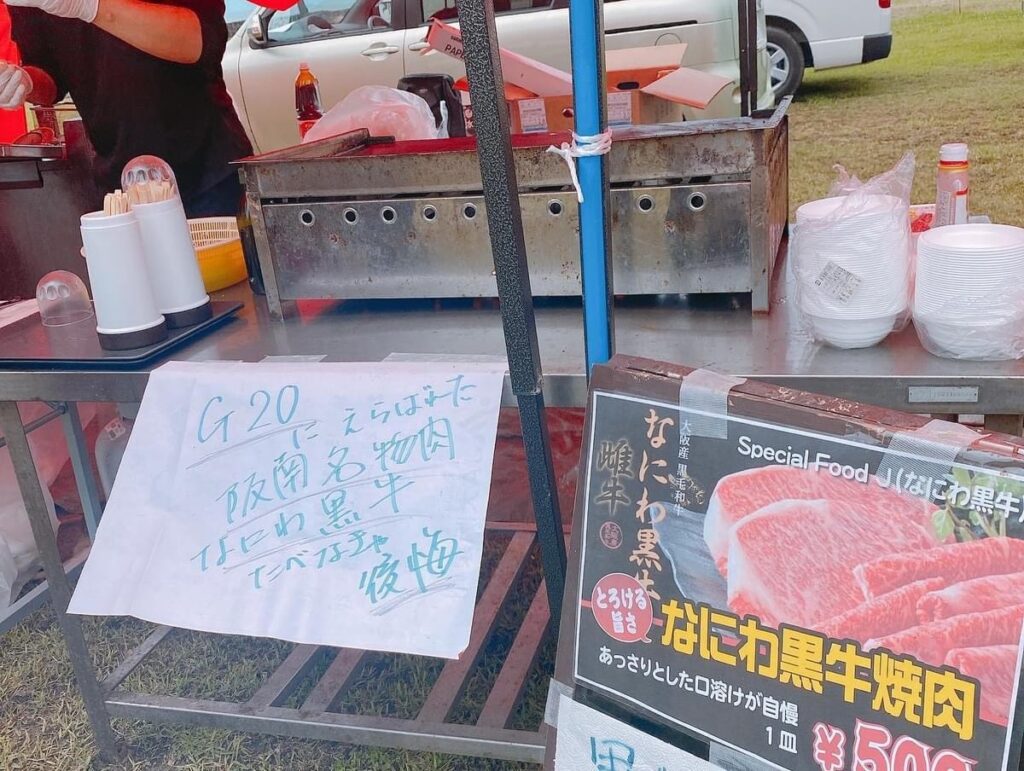 G20
にえらばれた
阪南名物肉
なにわ黒牛
たべなきゃ
後悔
大阪産 黒毛和牛
なにわ黒牛
雌牛
Special Food
(なにわ黒牛
とろける
旨さ
なにわ黒牛焼肉
あっさりとした口溶けが自慢
1皿
¥500